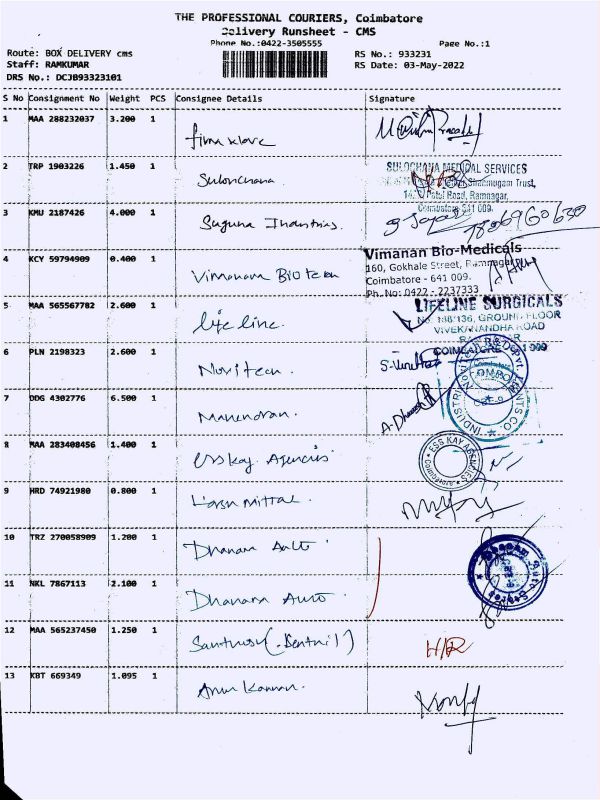 THE PROFESSIONAL COURIERS, Coimbatore
Delivery Runsheet - CMS
Phone No.:0422-3505555
Page No.:1
Route: BOX DELIVERY cms
RS No.: 933231
Staff: RAMKUMAR
RS Date: 03-May-2022
DRS No.: DCJB93323101
S No Consignment No Weight PCS Consignee Details Signature
1 MAA 288232037 3.200 1
2 TRP 1903226 1.450 1 Sulonchana
SULOCHANA MEDICAL SERVICES
Ramnagar,
Coimbatore 641 009.
3 KMU 2187426 4.000 1 Suguna Industries.
4 KCY 59794909 0.400 1 Vimanan Bio tech
Vimanan Bio-Medicals
160, Gokhale Street, Ramnagar
Coimbatore - 641 009.
Ph. No: 0422 - 2237333
5 MAA 565567782 2.600 1 Life line.
LIFELINE SURGICALS
GROUND FLOOR
VIVEKANANDHA ROAD
COIMBATORE
6 PLN 2198323 2.600 1 Novitech
7 ODG 4302776 6.500 1 Mahendran.
8 MAA 283408456 1.400 1 Esskay Agencies
ESS KAY AGENCIES
9 HRD 74921980 0.800 1
10 TRZ 270058909 1.200 1 Dhanam Auto
11 NKL 7867113 2.100 1 Dhanam Auto
12 MAA 565237450 1.250 1
H/R
13 KBT 669349 1.095 1 Arun Kannan.